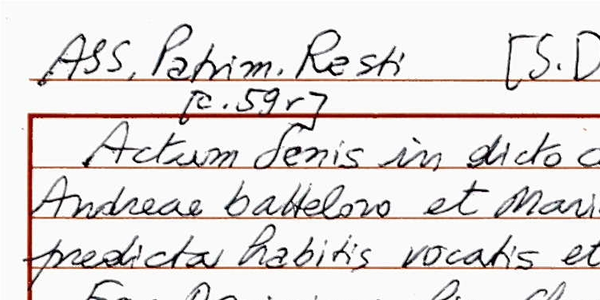 ASS, Patrim. Resti [S.D
[c. 59r]
Actum Senis in dicto
Andreae batteloro et Mari
predicta habitis vocatis et